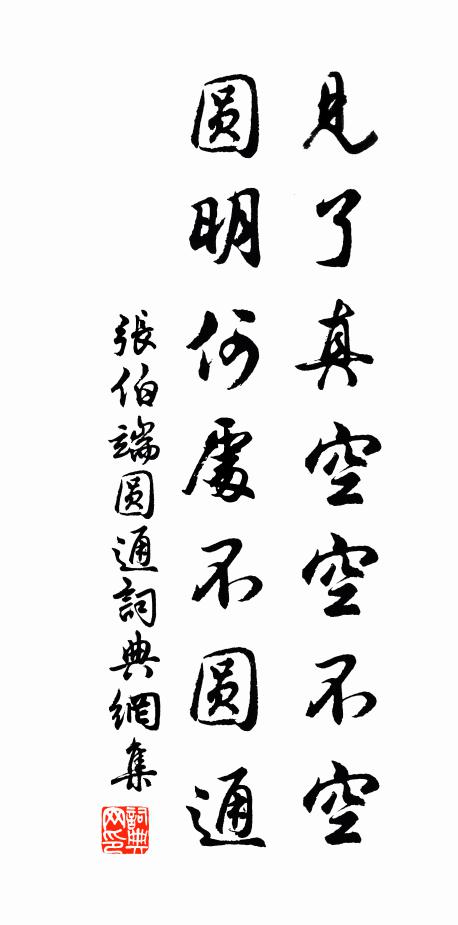 見了真空空不空
圆明何處不圆通
張伯端圆通詞典網集
詞典网印